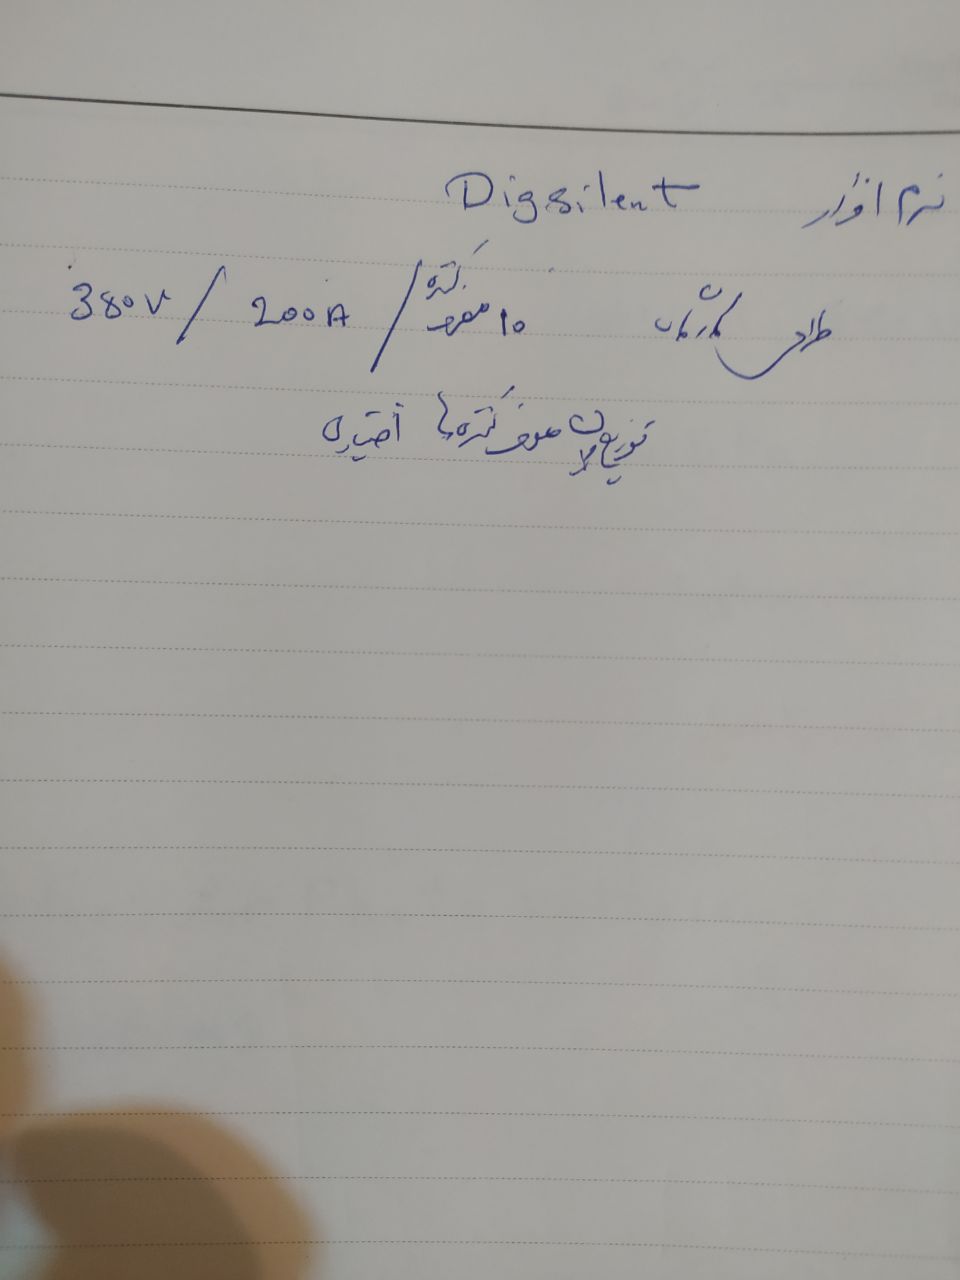 نرم افزار Digsilent
طراحی کارگاه ۱۰ مصرف کننده / 200A / 380V
توزیع توان مصرف کننده ها اختیاری